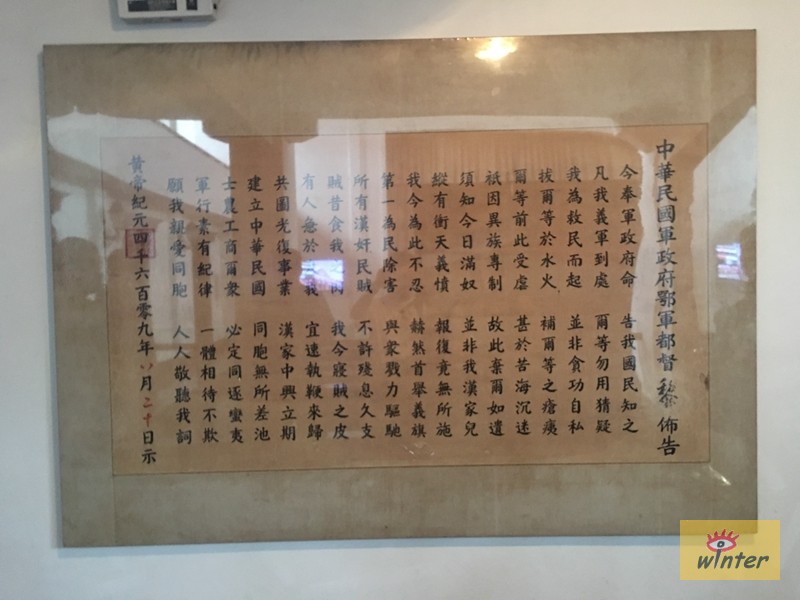 中華民國軍政府鄂軍都督黎佈告
今奉軍政府命 告我國民知之
凡我義軍到處 爾等勿用猜疑
我為救民而起 並非貪功自私
拔爾等於水火 補爾等之瘡痍
爾等前此受虐 甚於苦海沉迷
祇因異族專制 故此棄爾如遺
須知今日滿奴 並非我漢家兒
縱有衝天義憤 報復竟無所施
我今為此不忍 赫然首舉義旗
第一為民除害 與衆戮力驅馳
所有漢奸民賊 不許殘息久支
賊昔食我肉 我今寢賊之皮
有人急於我 宜速執鞭來歸
共圖光復事業 漢家中興立期
建立中華民國 同胞無所差池
士農工商爾衆 必定同逐蠻夷
軍行素有紀律 一體相待不欺
願我親愛同胞 人人敬聽我詞
黃帝紀元四千六百零九年八月二十日示
winter